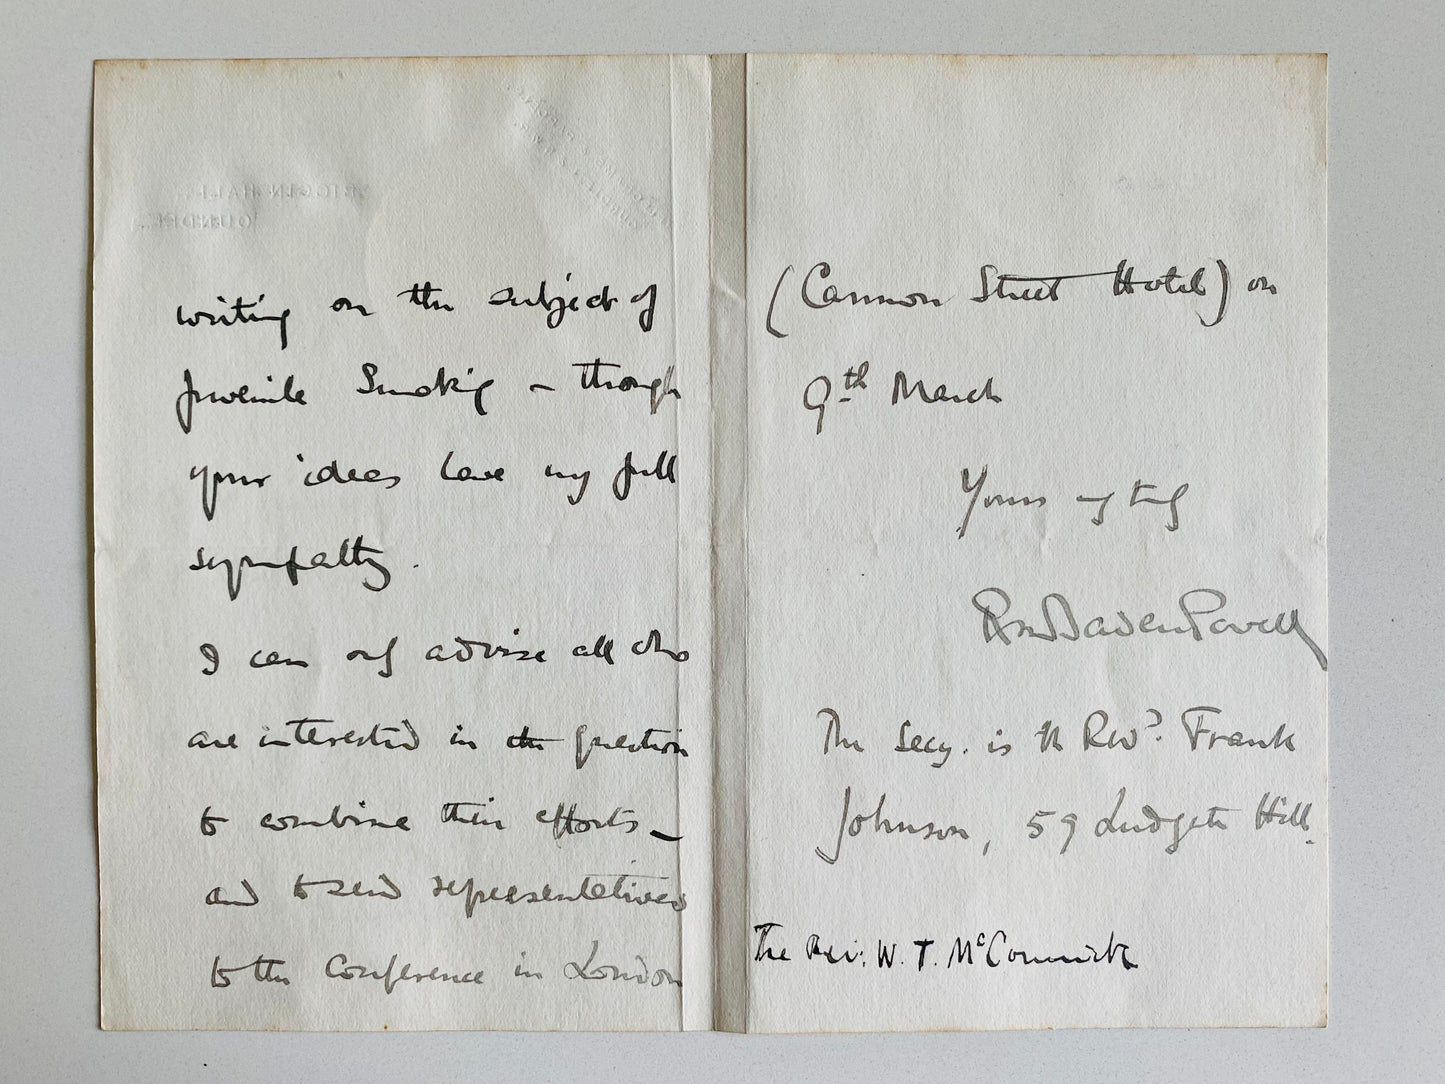 BIGGIN HALL
OUNDLE.
writing on the subject of
Juvenile Smoking – though
your ideas have my full
sympathy.
I can only advise all who
are interested in the question
to combine their efforts –
and to send representatives
to the Conference in London
(Cannon Street Hotel) on
9th March
Yours
Baden Powell
The Secy. is the Revd. Frank
Johnson, 59 Ludgate Hill.
The Rev: W. T. McCormick